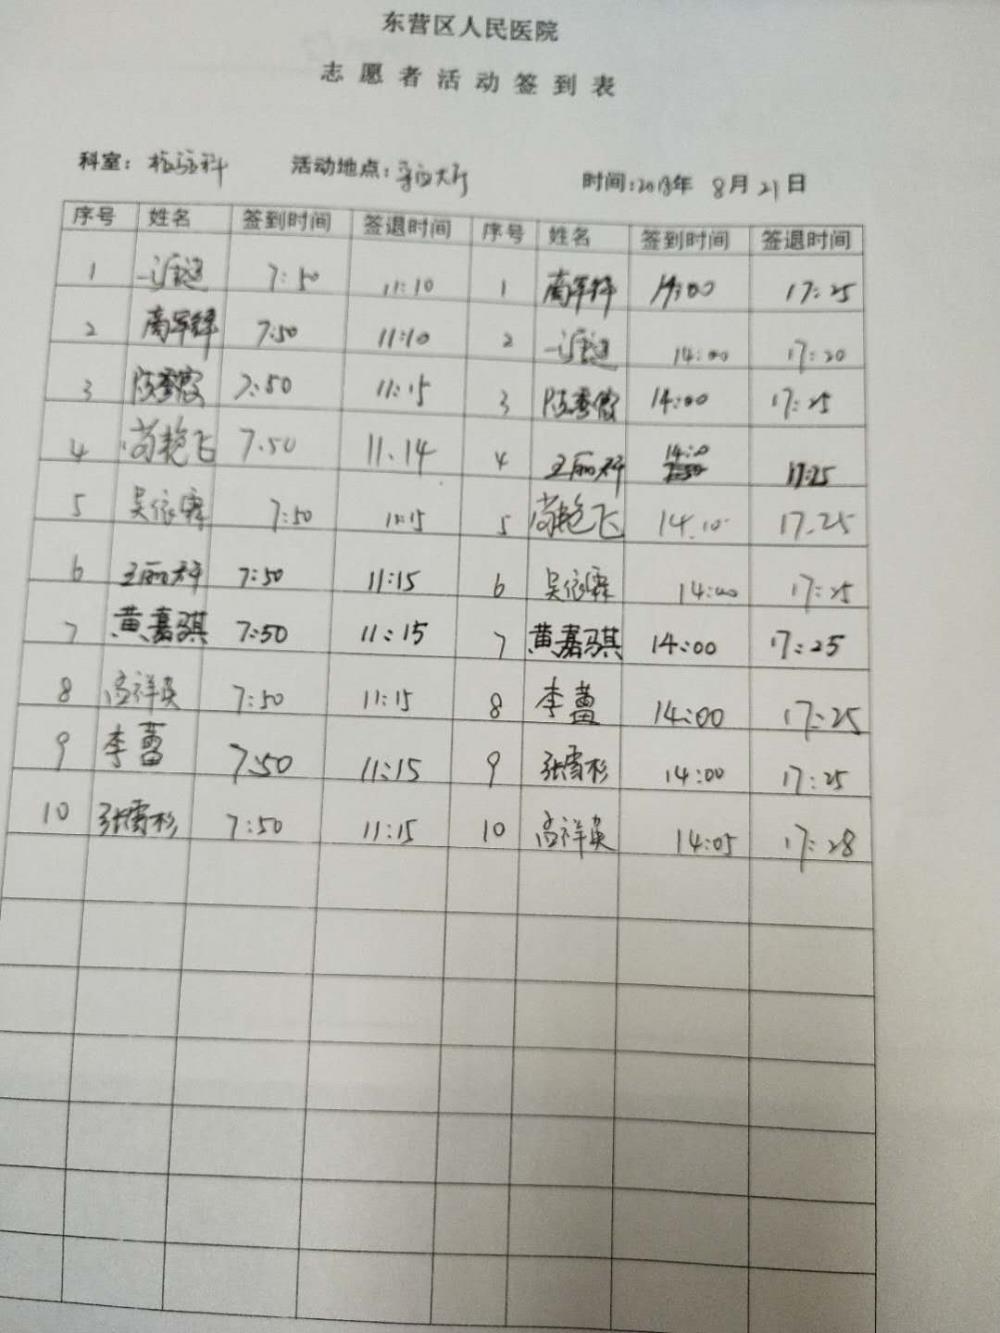 东营区人民医院
志愿者活动签到表
科室: 检验科 活动地点: 大厅 时间:2018年 8月21日
序号 姓名 签到时间 签退时间 序号 姓名 签到时间 签退时间
1 7:50 11:10 1 14:00 17:25
2 7:50 11:10 2 14:00 17:20
3 陈秀霞 7:50 11:15 3 陈秀霞 14:00 17:25
4 苟艳飞 7.50 11.14 4 王丽君 14:0 17:25
5 吴依霖 7:50 11:15 5 苟艳飞 14.10 17.25
6 王丽君 7:50 11:15 6 吴依霖 14:00 17:25
7 黄嘉骐 7:50 11:15 7 黄嘉骐 14:00 17:25
8 孟祥英 7:50 11:15 8 李蕾 14:00 17:25
9 李蕾 7:50 11:15 9 张雪杉 14:00 17:25
10 张雪杉 7:50 11:15 10 孟祥英 14:05 17:28